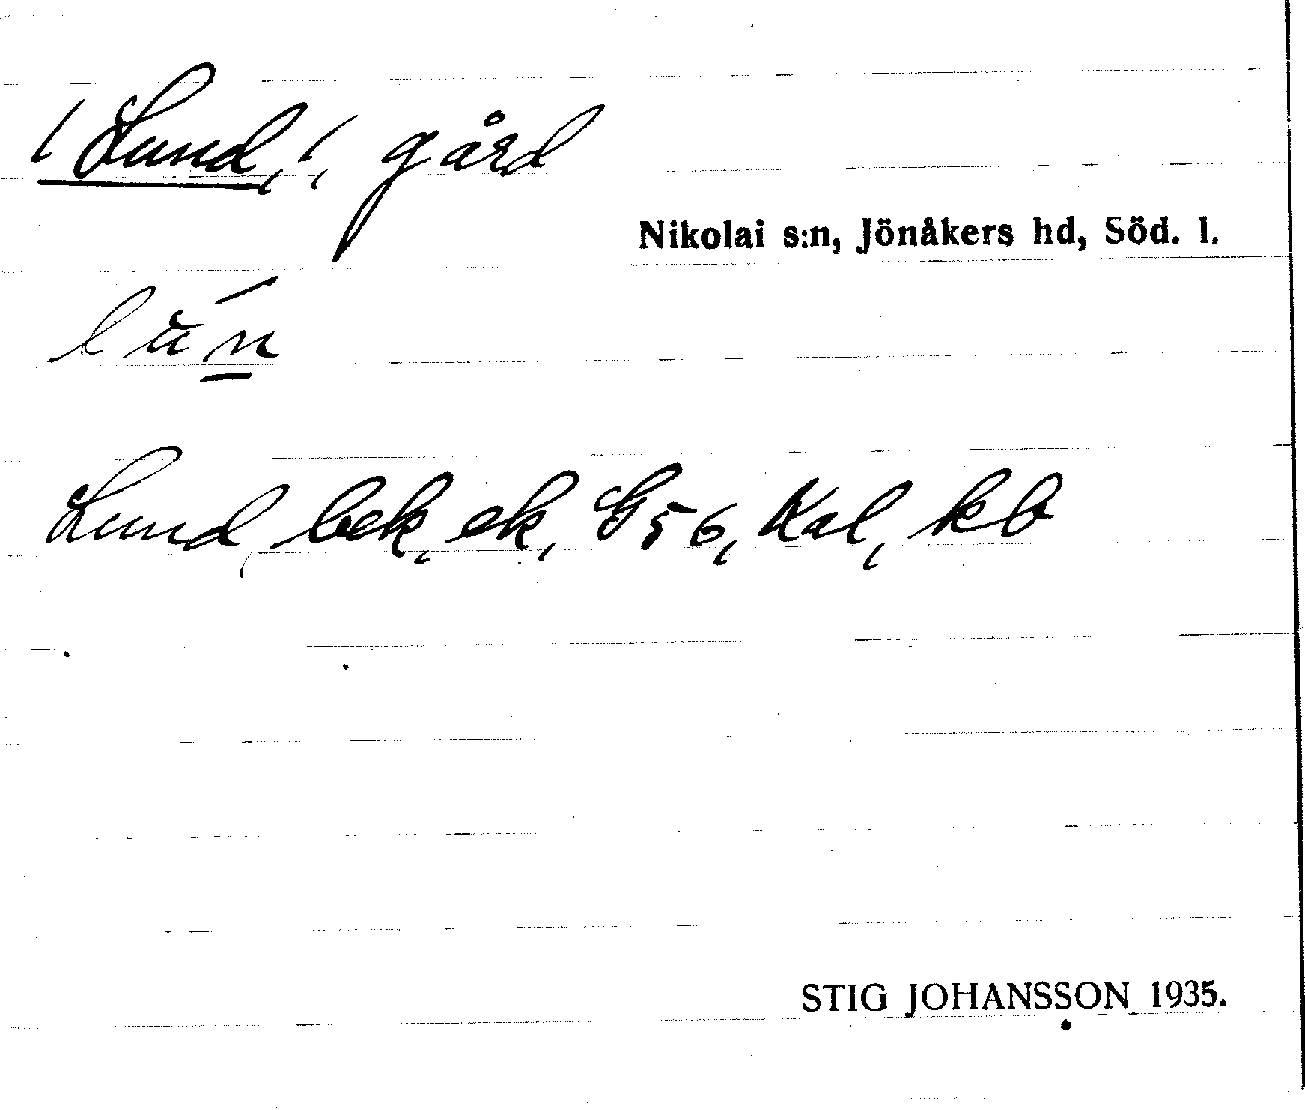 ( Lund, (, gård
Nikolai s:n, Jönåkers hd, Söd. l.
Lund, bek, ek, G56, Kal, kb
STIG JOHANSSON 1935.